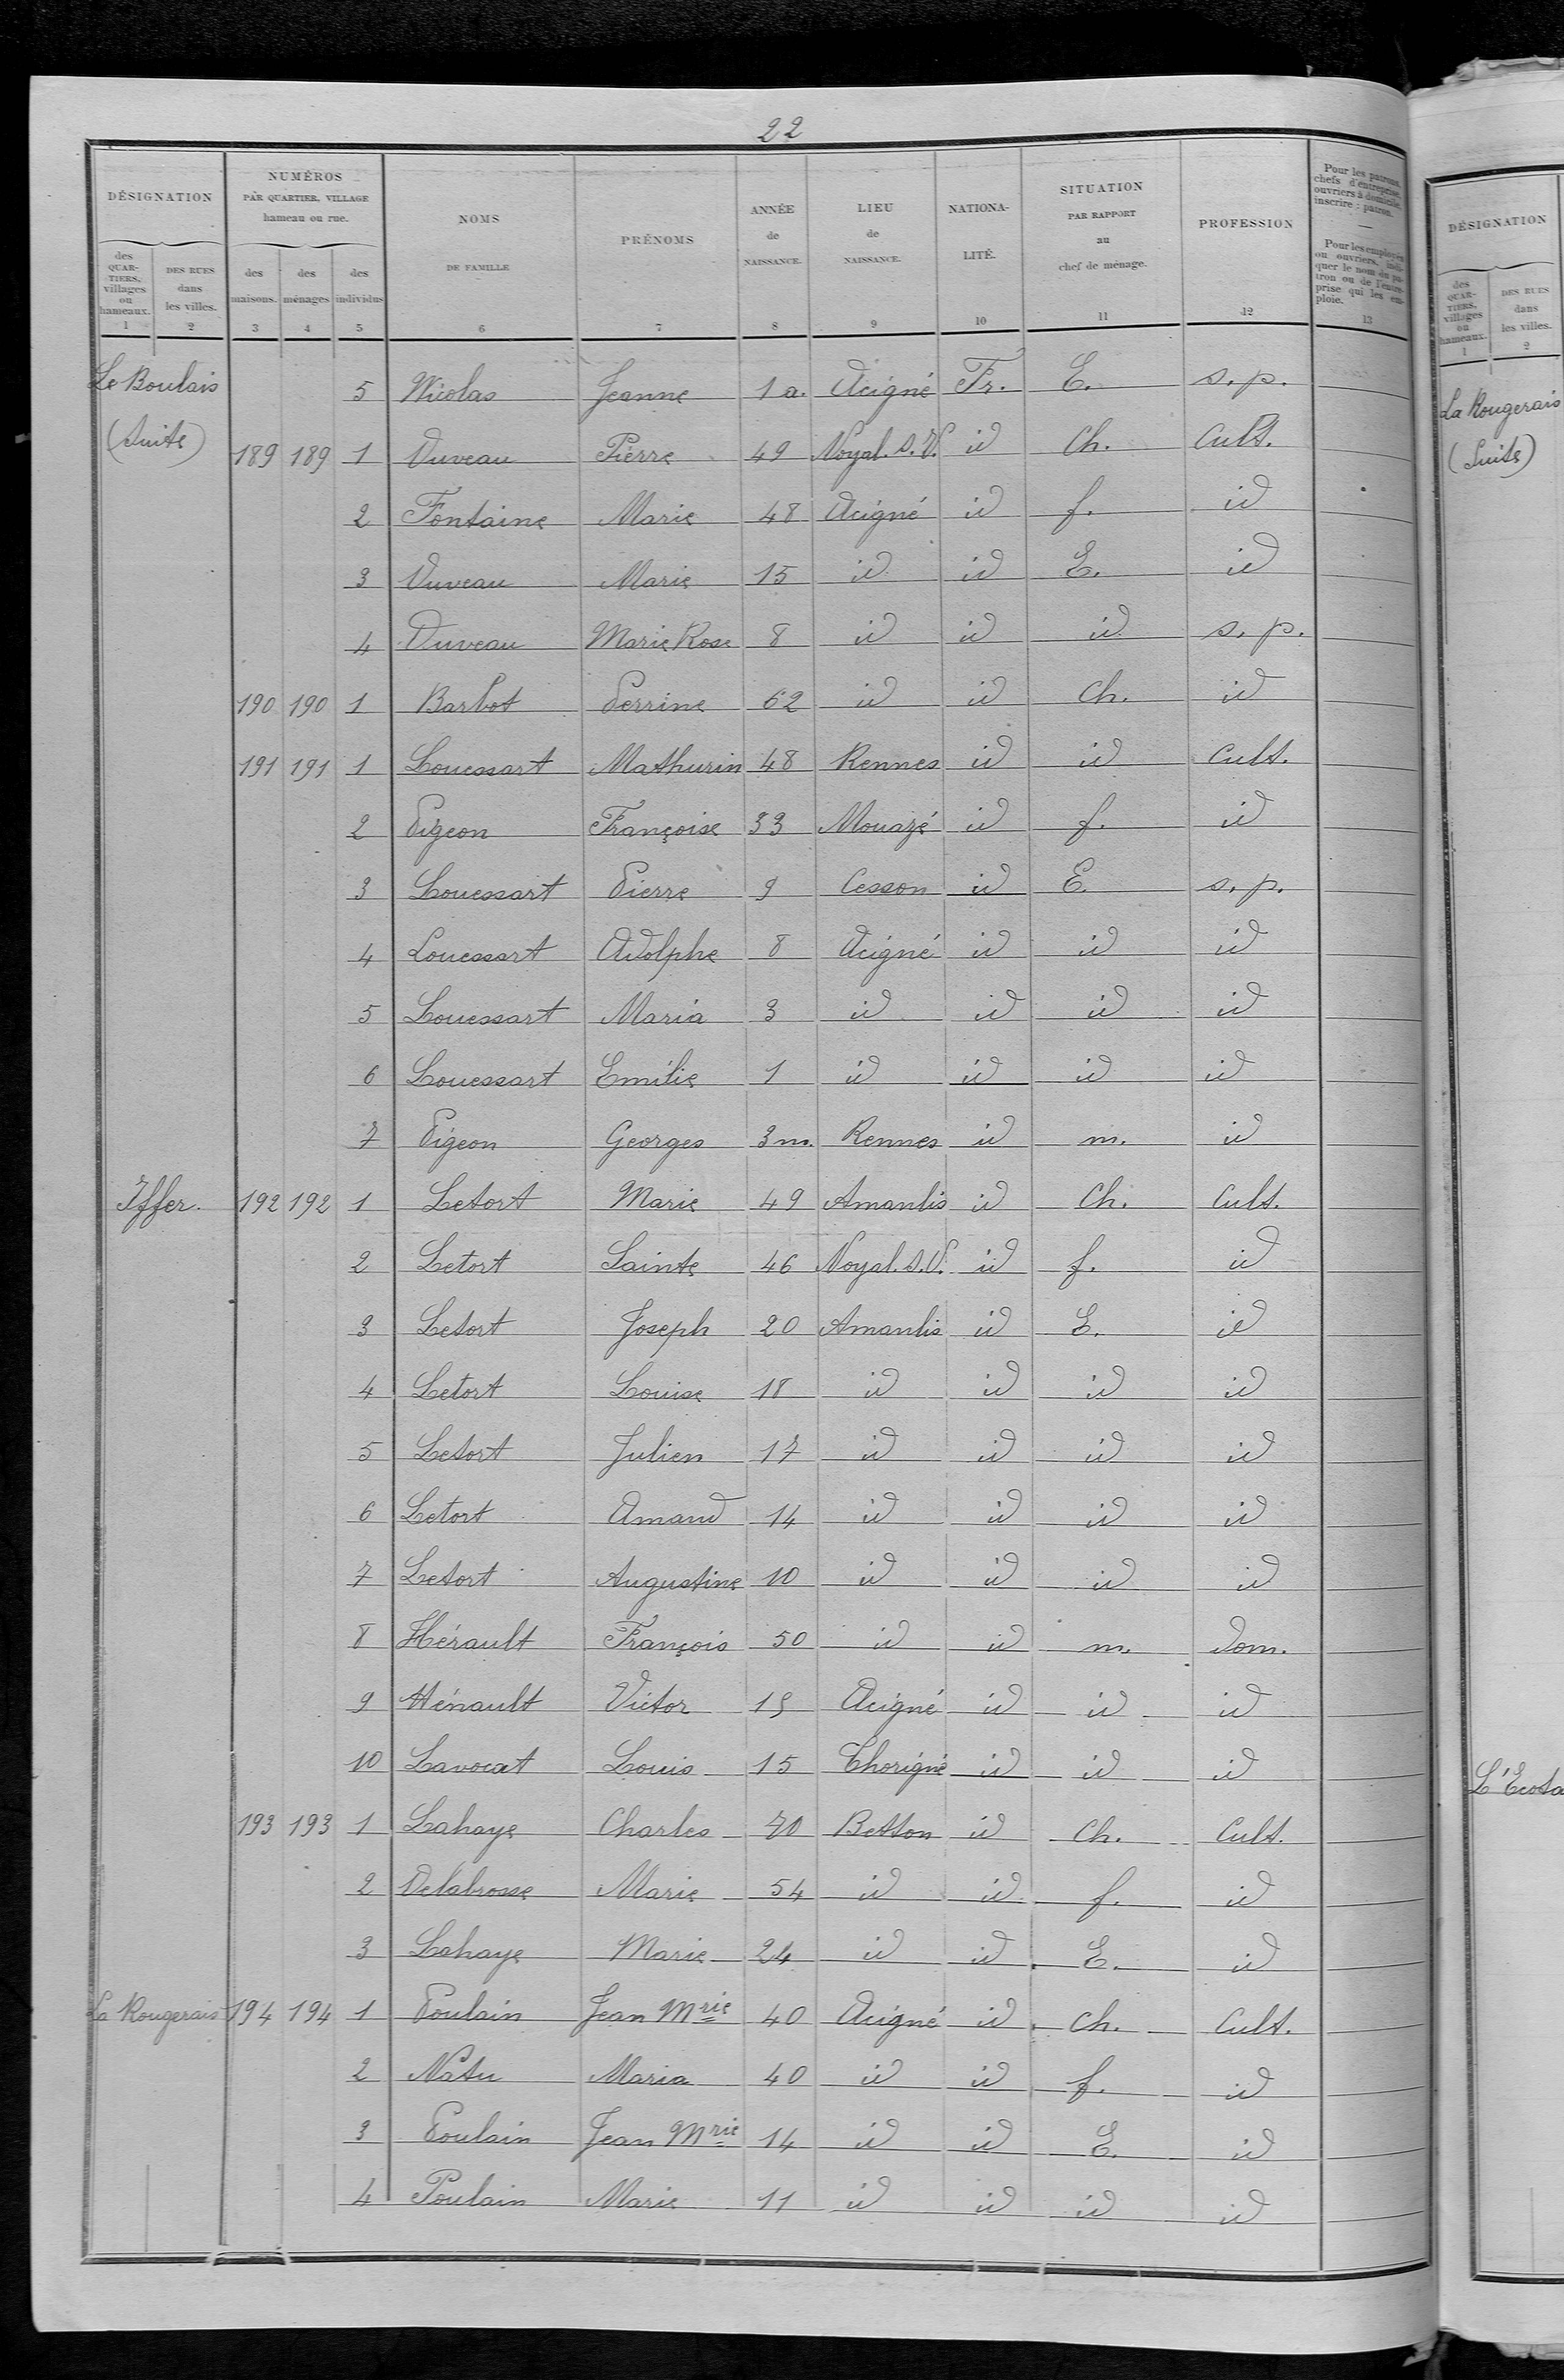 22
DÉSIGNATION
NUMÉROS
PAR QUARTIER, VILLAGE
hameau ou rue.
NOMS
DE FAMILLE
PRÉNOMS
ANNÉE
de
NAISSANCE.
LIEU
de
NAISSANCE.
NATIONA-
LITÉ.
SITUATION
PAR RAPPORT
au
chef de ménage.
PROFESSION
Pour les patrons,
chefs d'entreprise,
ouvriers à domicile,
inscrire : patron.
—
Pour les employés
ou ouvriers, indi-
quer le nom du pa-
tron ou de l'entre-
prise qui les em-
ploie.
des
QUAR-
TIERS,
villages
ou
hameaux.
DES RUES
dans
les villes.
des
maisons.
des
ménages
des
individus
1 2 3 4 5 6 7 8 9 10 11 12 13
Le Boulais 5 Nicolas Jeanne 1 a. Acigné Fr. E. s. p.
(Suite) 189 189 1 Duveau Pierre 49 Noyal. s. V. id Ch. Cult.
2 Fontaine Marie 48 Acigné id f. id
3 Duveau Marie 15 id id E. id
4 Duveau Marie Rose 8 id id id s. p.
190 190 1 Barbot Perrine 62 id id Ch. id
191 191 1 Louessart Mathurin 48 Rennes id id Cult.
2 Pigeon Françoise 33 Mouazé id f. id
3 Louessart Pierre 9 Cesson id E. s. p.
4 Louessart Adolphe 8 Acigné id id id
5 Louessart Maria 3 id id id id
6 Louessart Emilie 1 id id id id
7 Pigeon Georges 3 m. Rennes id m. id
Iffer. 192 192 1 Letort Marie 49 Amanlis id Ch. Cult.
2 Letort Sainte 46 Noyal. s. V. id f. id
3 Letort Joseph 20 Amanlis id E. id
4 Letort Louise 18 id id id id
5 Letort Julien 17 id id id id
6 Letort Amand 14 id id id id
7 Letort Augustine 10 id id id id
8 Hérault François 50 id id m. dom.
9 Hénault Victor 15 Acigné id id id
10 Lavocat Louis 15 Thorigné id id id
193 193 1 Lahaye Charles 70 Betton id Ch. Cult.
2 Delabrosse Marie 54 id id f. id
3 Lahaye Marie 24 id id E. id
La Rougerais 194 194 1 Poulain Jean Mrie 40 Acigné id Ch. Cult.
2 Natu Maria 40 id id f. id
3 Poulain Jean Mrie 14 id id E. id
4 Poulain Marie 11 id id id id
DÉSIGNATION
des
QUAR-
TIERS,
villages
ou
hameaux.
1
DES RUES
dans
les villes.
2
La Rougerais
(Suite)